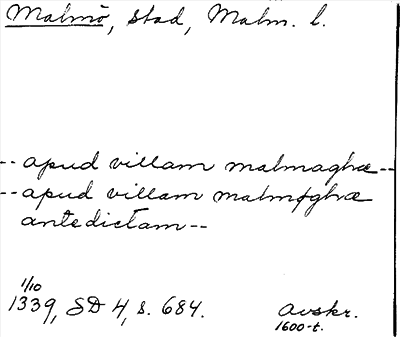 Malmö, stad, Malm. l.
-- apud villam malmaghæ --
-- apud villam malmøghæ
antedictam --
1/10
1339, SD 4, s. 684.
Avskr.
1600-t.